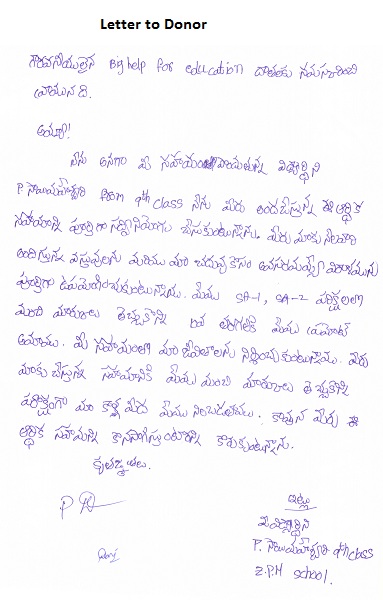 Letter to Donor
గౌరవనీయులైన Big help for education దాతలకు నమస్కరించి
వ్రాయునది.
అయ్యా!
నేను అనగా మీ సహాయం పొందుతున్న విద్యార్థిని
P. సాయిమహేశ్వరి from 9th class నేను మీరు అందజేస్తున్న ఈ ఆర్థిక
సహాయాన్ని పూర్తిగా సద్వినియోగం చేసుకుంటున్నాను. మీరు మాకు
అందిస్తున్న వస్తువులను మరియు మా చదువు కోసం అవసరమయ్యే
పూర్తిగా ఉపయోగించుకుంటున్నాను. మేము SA-1, SA-2 పరీక్షలలో
మంచి మార్కులు తెచ్చుకొని తరగతికి మేము ప్రమోట్
అయ్యాము. మీ సహాయంతో మా జీవితాలను నిర్మించుకుంటున్నాము. మీరు
మాకు చేస్తున్న సహాయానికి మేము మంచి మార్కులు తెచ్చుకొని
మా కాళ్ళ మీద మేము నిలబడతాము. కావున మీరు ఈ
ఆర్థిక సహాయాన్ని కొనసాగిస్తుంటారని కోరుకుంటున్నాను.
కృతజ్ఞతలు.
ఇట్లు
మీ విద్యార్థిని
P. సాయిమహేశ్వరి 9th class
Z.P.H school.